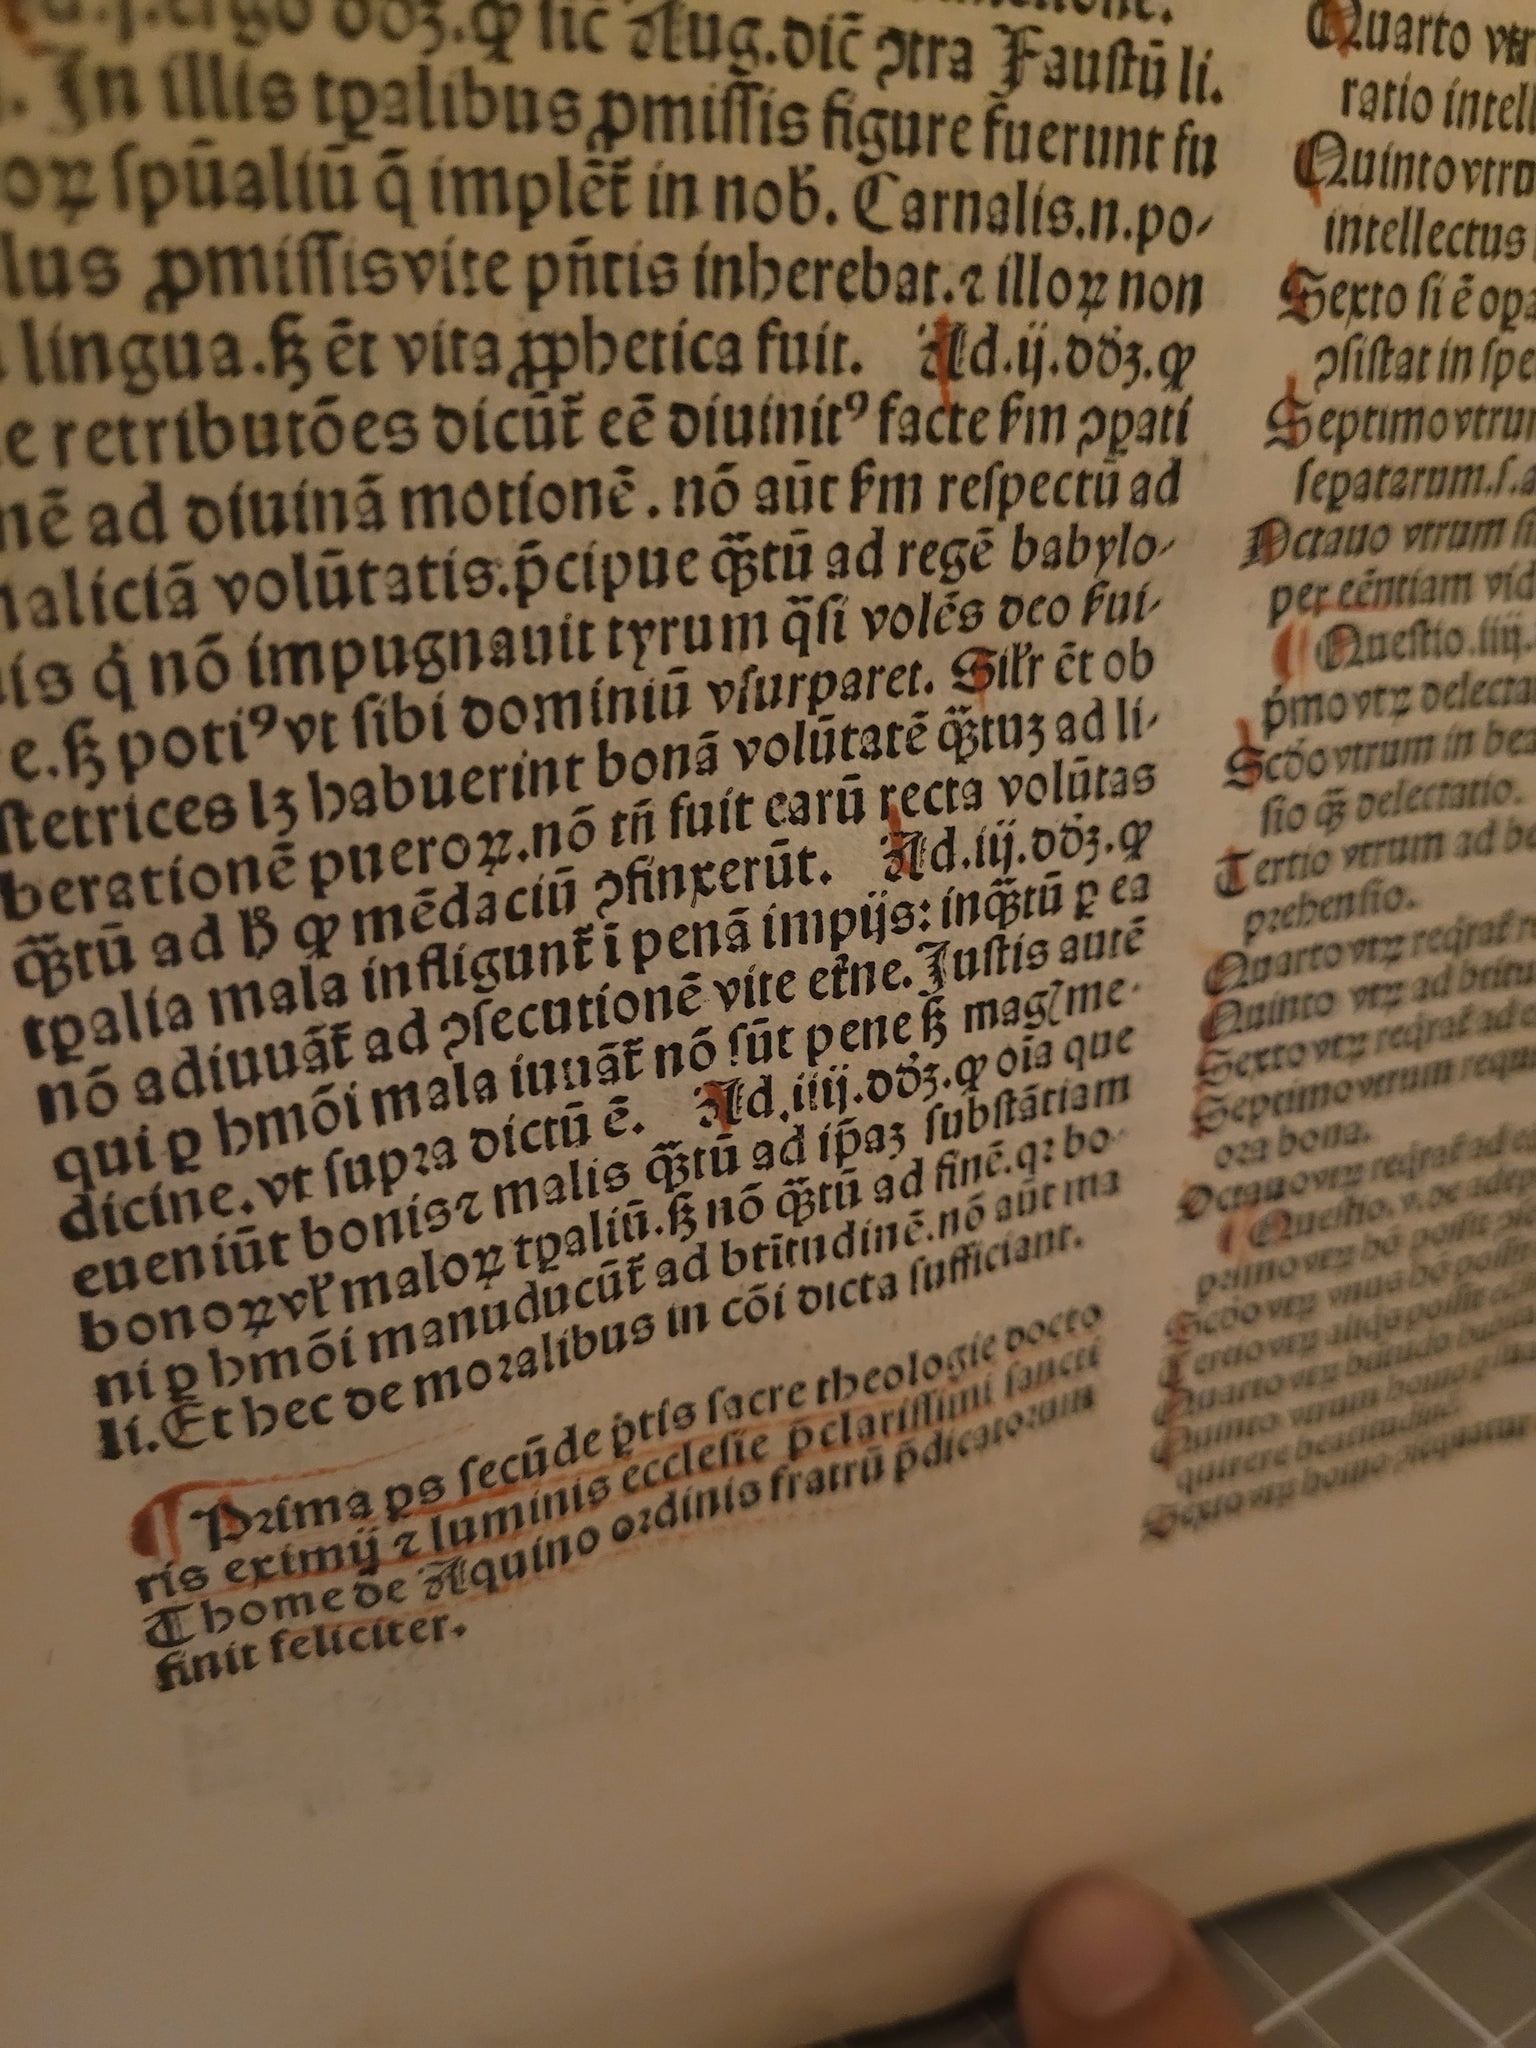 ergo dōꝫ.ꝙ sic̄ Aug.dic̄ ↄtra Faustū li.
In illis tꝑalibus ꝓmissis figure fuerunt fu
oꝝ spūaliū q̄ implēt̄ in nob̄. Carnalis.n.po-
lus ꝓmissis vite pn̄tis inherebat.⁊ illoꝝ non
lingua.sꝫ ēt vita ꝓphetica fuit. Ad.ij.dōꝫ.ꝙ
e retributōes dicūt̄ eē diuinitꝰ facte ẜm ↄꝑati
nē ad diuinā motionē. nō aūt ẜm respectū ad
maliciā volūtatis.p̄cipue qꝫ̈tū ad regē babylo-
is q̇ nō impugnauit tyrum q̈si volēs deo ẜui-
e.sꝫ potiꝰ vt sibi dominiū vsurparet. Sil̄r ēt ob
stetrices lꝫ habuerint bonā volūtatē qꝫ̈tuꝫ ad li-
berationē pueroꝝ.nō tn̄ fuit earū recta volūtas
qꝫ̈tū ad h̄ ꝙ mēdaciū ↄfinxerūt. Ad.iij.dōꝫ.ꝙ
tꝑalia mala infligunt̄ ī penā impijs: inqꝫ̈tū ꝑ ea
nō adiuuāt̄ ad ↄsecutionē vite et̄ne. Iustis autē
qui ꝑ hmōi mala iuuāt̄ nō sūt pene sꝫ magꝭ me-
dicine. vt supra dictū ē. Ad.iiij.dōꝫ.ꝙ oīa que
eueniūt bonis ⁊ malis qꝫ̈tū ad ip̄aꝫ substātiam
bonoꝝ vl̄ maloꝝ tꝑaliū.sꝫ nō qꝫ̈tū ad finē.qꝛ bo-
ni ꝑ hmōi manuducūt̄ ad btītudinē.nō aūt ma
li. Et hec de moralibus in cōi dicta sufficiant.
¶ Prima ꝑs secūde ꝑtis sacre theologie docto
ris eximij ⁊ luminis ecclesie p̄clarissimi sancti
Thome de Aquino ordinis fratrū p̄dicatorum
finit feliciter.
Quarto vtr
ratio intell
Quinto vtru
intellectus
Sexto si ē oꝑa
ↄsistat in spe
Septimo vtrum
seꝑatarum.s.a
Octauo vtrum
per eēntiam vid
¶ Questio.iiij.
p̄mo vtꝝ delecta
Scd̄o vtrum in bea
sio qꝫ̈ delectatio.
Tertio vtrum ad be
prehensio.
Quarto vtꝝ reqrat̄
Quinto vtꝝ ad btitu
Sexto vtꝝ reqrat̄ ad
Septimo vtrum requi
ora bona.
Octauo vtꝝ reqrat̄ ad
¶ Questio.v.de adep
primo vtꝝ hō possit
Scd̄o vtꝝ vnus hō possit
Tertio vtꝝ aliqs possit
Quarto vtꝝ btitudo
Quinto vtrum homo
quirere beatitudinē.
Sexto vtꝝ homo ↄsequatur